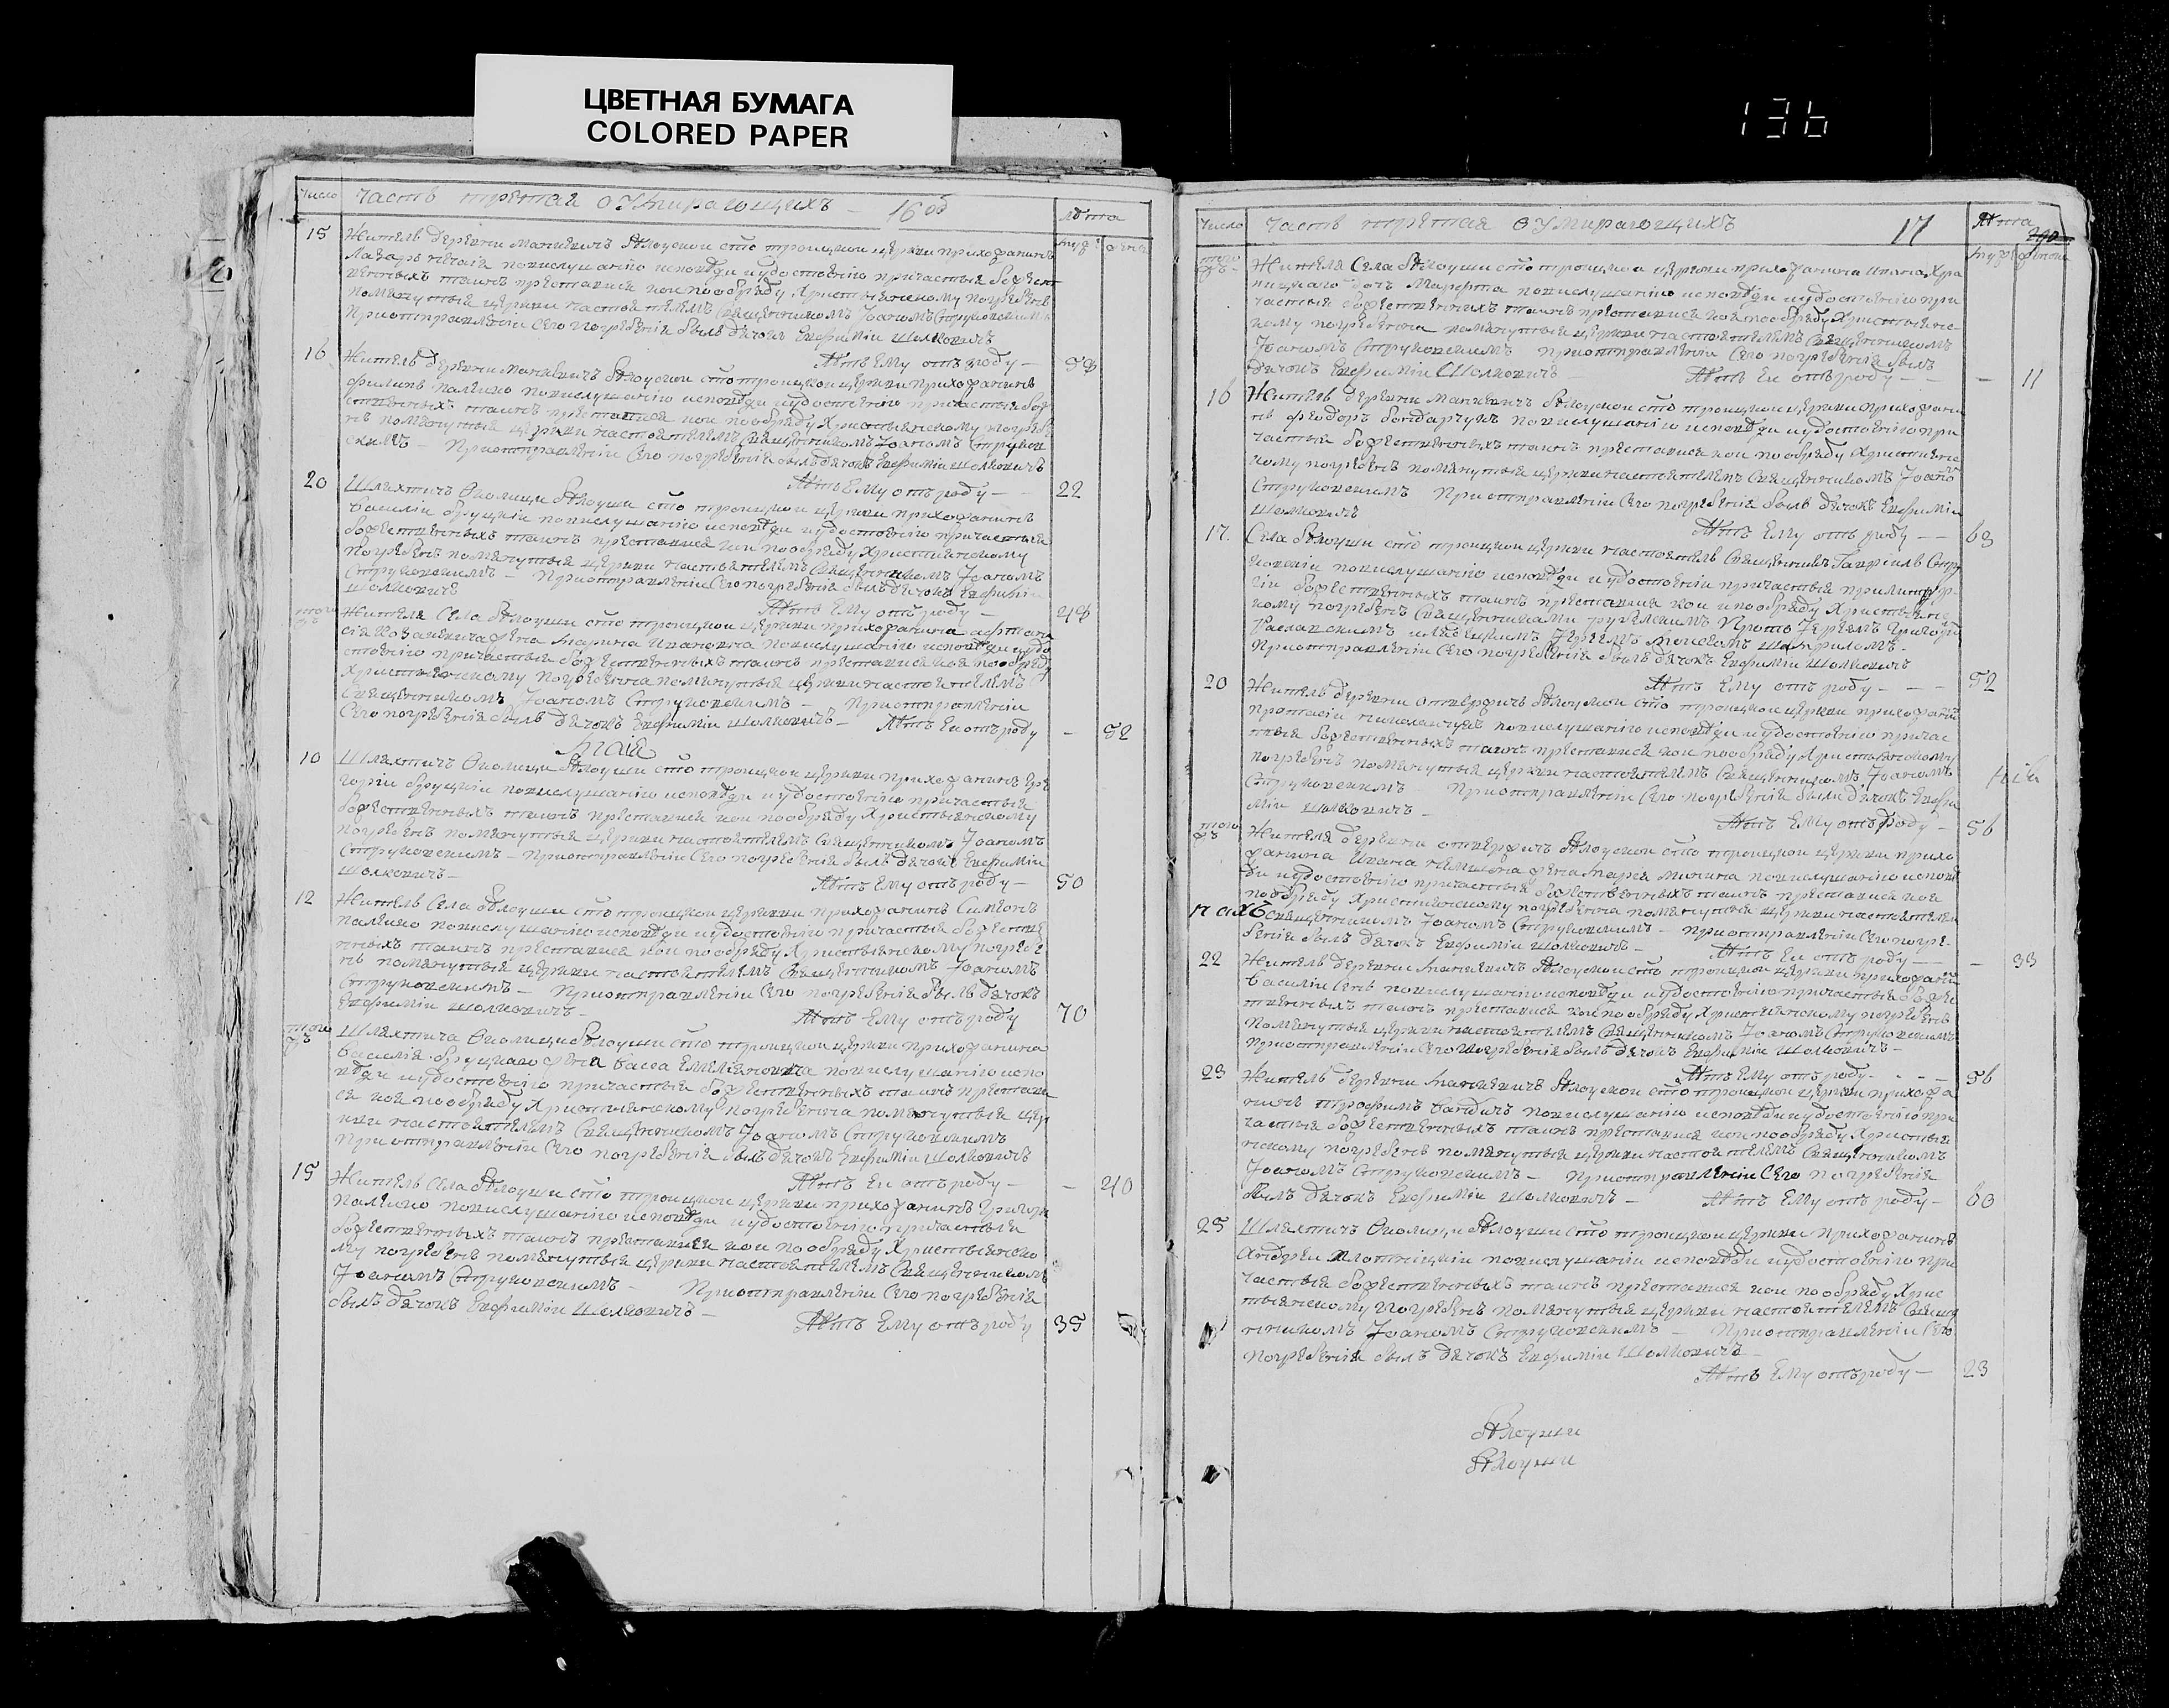 ЦВЕТНАЯ БУМАГА
COLORED PAPER
136
Число Часть третая о Умирающихъ 16 об Лѣта
15 Житель деревни Манкевичъ Бѣлоуской сто троицкой церкви прихожанинъ
Лазарь по выслушанію исповѣди и удостоенію причастія Божест
венныхъ таинъ преставися кой по обряду Христіянскому погребенъ
помянутыя церкви настоятелемъ Священникомъ Іоаномъ Струковскимъ
При отправленіи Сего погребенія былъ дячокъ Евфимій Шолковичъ
Лѣтъ Ему отъ роду — 58
16 Житель деревни Манкевичъ Бѣлоуской сто троицкой церкви прихожанинъ
Филипъ Палейко по выслушанію исповѣди и удостоенію причастія Бож
ественныхъ таинъ преставися кой по обряду Христіянскому погребе
нъ помянутыя церкви настоятелемъ Священникомъ Іоаномъ Струков
скимъ — При отправленіи Сего погребенія былъ дячокъ Евфимій Шолковичъ
Лѣтъ Ему отъ роду — 22
20 Шляхтичъ Околици Бѣлоуши сто троицкой церкви прихожанинъ
Василій по выслушанію исповѣди и удостоенію причастія
Божественныхъ таинъ преставися кой по обряду Христіянскому
погребенъ помянутыя церкви настоятелемъ Священникомъ Іоаномъ
Струковскимъ — При отправленіи Сего погребенія былъ дячокъ Евфимій
Шолковичъ
Лѣтъ Ему отъ роду — 48
Жителя Села Бѣлоуши сто троицкой церкви прихожанина
жена Марина Ивановна по выслушанію исповѣди и удо
стоенію причастія Божественныхъ таинъ преставися коя по обряду
Христіянскому погребенна помянутыя церкви настоятелемъ
Священникомъ Іоаномъ Струковскимъ — При отправленіи
Сего погребенія былъ дячокъ Евфимій Шолковичъ — Лѣтъ Ей отъ роду — 52
Маія
10 Шляхтичъ Околици Бѣлоуши сто троицкой церкви прихожанинъ
по выслушанію исповѣди и удостоенію причастія
Божественныхъ таинъ преставися кой по обряду Христіянскому
погребенъ помянутыя церкви настоятелемъ Священникомъ Іоаномъ
Струковскимъ — При отправленіи Сего погребенія былъ дячокъ Евфимій
Шолковичъ — Лѣтъ Ему отъ роду — 50
12 Житель Села Бѣлоуши сто троицкой церкви прихожанинъ Симеонъ
Палейко по выслушанію исповѣди и удостоенію причастія Божестве
нныхъ таинъ преставися кой по обряду Христіянскому погребе
нъ помянутыя церкви настоятелемъ Священникомъ Іоаномъ
Струковскимъ — При отправленіи Сего погребенія былъ дячокъ
Евфимій Шолковичъ — Лѣтъ Ему отъ роду 70
Шляхтича Околици Бѣлоуши сто троицкой церкви прихожанина
Василія жена Васса Емеліяновна по выслушанію испо
вѣди и удостоенію причастія Божественныхъ таинъ престави
ся коя по обряду Христіянскому погребенна помянутыя цер
кви настоятелемъ Священникомъ Іоаномъ Струковскимъ
При отправленіи Сего погребенія былъ дячокъ Евфимій Шолковичъ
Лѣтъ Ей отъ роду — — 40
15 Житель Села Бѣлоуши сто троицкой церкви прихожанинъ Григорій
Палейко по выслушанію исповѣди и удостоенію причастія
Божественныхъ таинъ преставися кой по обряду Христіянско
му погребенъ помянутыя церкви настоятелемъ Священникомъ
Іоаномъ Струковскимъ — При отправленіи Сего погребенія
былъ дячокъ Евфимій Шолковичъ — Лѣтъ Ему отъ роду 35
Число Часть третая о Умирающихъ 17 Лѣта
Жителя Села Бѣлоуши сто троицкой церкви прихожанина Ивана Хра
ницкаго дочъ Марфа по выслушанію исповѣди и удостоенію при
частія Божественныхъ таинъ преставися коя по обряду Христіянс
кому погребенна помянутыя церкви настоятелемъ Священникомъ
Іоаномъ Струковскимъ При отправленіи Сего погребенія былъ
дячокъ Евфимій Шолковичъ Лѣтъ Ей отъ роду — — 11
16 Житель деревни Манкевичъ Бѣлоуской сто троицкой церкви прихожани
нъ Феодоръ Бондарчукъ по выслушанію исповѣди и удостоенію при
частія Божественныхъ таинъ преставися кой по обряду Христіянс
кому погребенъ помянутыя церкви настоятелемъ Священникомъ Іоано
Струковскимъ При отправленіи Сего погребенія былъ дячокъ Евфимій
Шолковичъ
Лѣтъ Ему отъ роду — — 63
17. Села Бѣлоуши сто троицкой церкви настоятель Священникъ Гавріилъ Стру
ковскій по выслушанію исповѣди и удостоенію причастія
Божественныхъ таинъ преставися кой по обряду Христіянс
кому погребенъ Священниками
При отправленіи Сего погребенія былъ дячокъ Евфимій Шолковичъ
Лѣтъ Ему отъ роду — — — 52
20 Житель деревни Отвержичъ Бѣлоуской сто троицкой церкви прихожанинъ
по выслушанію исповѣди и удостоенію причас
тія Божественныхъ таинъ преставися кой по обряду Христіянскому
погребенъ помянутыя церкви настоятелемъ Священникомъ Іоаномъ
Струковскимъ При отправленіи Сего погребенія былъ дячокъ Евфи
мій Шолковичъ — Лѣтъ Ему отъ роду — 56
Жителя деревни Отвержичъ Бѣлоуской сто троицкой церкви прихо
жанина Ивана жена Марія по выслушанію исповѣ
ди и удостоенію причастія Божественныхъ таинъ преставися коя
по обряду Христіянскому погребенна помянутыя церкви настоятеле
Священникомъ Іоаномъ Струковскимъ — При отправленіи Сего погре
бенія былъ дячокъ Евфимій Шолковичъ — Лѣтъ Ей отъ роду — — 33
22 Житель деревни Манкевичъ Бѣлоуской сто троицкой церкви прихожанинъ
Василій по выслушанію исповѣди и удостоенію причастія Боже
ственныхъ таинъ преставися кой по обряду Христіянскому погребенъ
помянутыя церкви настоятелемъ Священникомъ Іоаномъ Струковскимъ
При отправленіи Сего погребенія былъ дячокъ Евфимій Шолковичъ —
Лѣтъ Ему отъ роду — 56
23 Житель деревни Манкевичъ Бѣлоуской сто троицкой церкви прихожа
нинъ Трофимъ по выслушанію исповѣди и удостоенію при
частія Божественныхъ таинъ преставися кой по обряду Христія
нскому погребенъ помянутыя церкви настоятелемъ Священникомъ
Іоаномъ Струковскимъ — При отправленіи Сего погребенія
былъ дячокъ Евфимій Шолковичъ — Лѣтъ Ему отъ роду — 60
25 Шляхтичъ Околици Бѣлоуши сто троицкой церкви прихожанинъ
Андрей Плотницкій по выслушанію исповѣди и удостоенію при
частія Божественныхъ таинъ преставися кой по обряду Хрис
тіянскому погребенъ помянутыя церкви настоятелемъ Священ
никомъ Іоаномъ Струковскимъ — При отправленіи Сего
погребенія былъ дячокъ Евфимій Шолковичъ —
Лѣтъ Ему отъ роду — 23
Бѣлоуши
Бѣлоуши